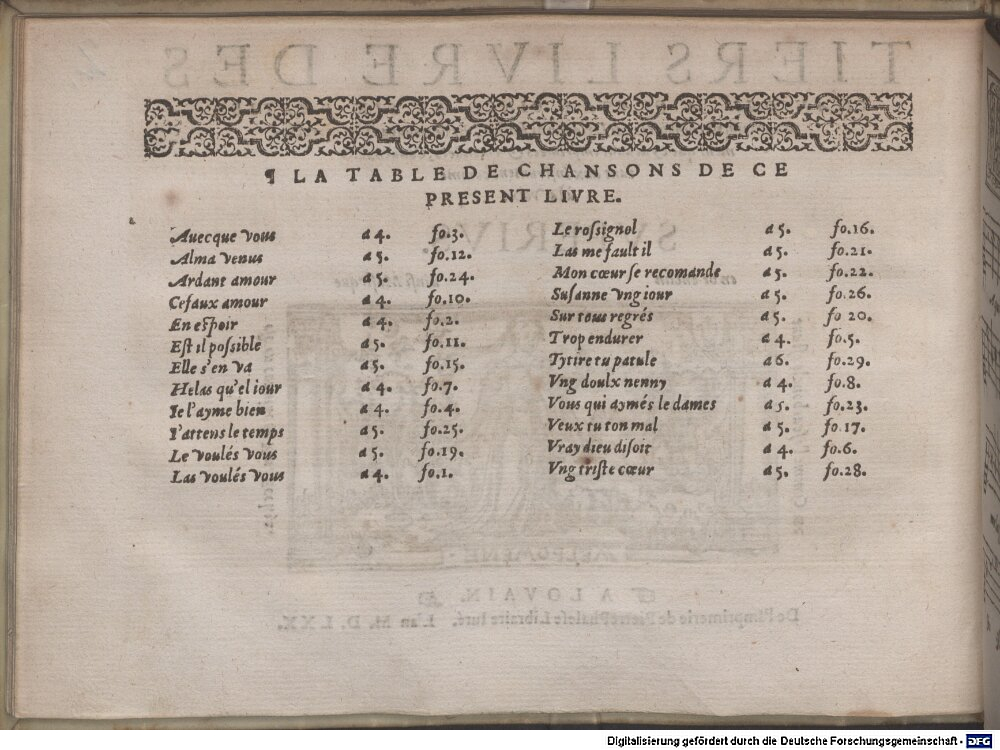 ¶ LA TABLE DE CHANSONS DE CE
PRESENT LIVRE.
Auecque vous a 4. fo.3.
Alma venus a 5. fo.12.
Ardant amour a 5. fo.24.
Ce faux amour a 4. fo.10.
En espoir a 4. fo.2.
Est il possible a 5. fo.11.
Elle s'en va a 5. fo.15.
Helas qu'el iour a 4. fo.7.
Ie l'ayme bien a 4. fo.4.
I'attens le temps a 5. fo.25.
Le voulés vous a 5. fo.19.
Las voulés vous a 4. fo.1.
Le rossignol a 5. fo.16.
Las me fault il a 5. fo.21.
Mon cœur se recomande a 5. fo.22.
Susanne vng iour a 5. fo.26.
Sur tous regrés a 5. fo 20.
Trop endurer a 4. fo.5.
Tytire tu patule a 6. fo.29.
Vng doulx nenny a 4. fo.8.
Vous qui aymés le dames a 5. fo.23.
Veux tu ton mal a 5. fo.17.
Vray dieu disoit a 4. fo.6.
Vng triste cœur a 5. fo.28.
Digitalisierung gefördert durch die Deutsche Forschungsgemeinschaft - DFG